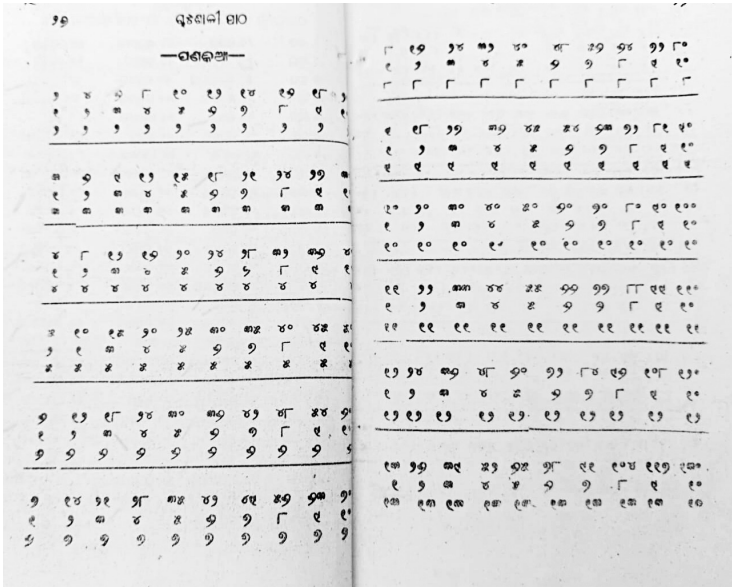 ପାଠ
ପଣକଆ
୨ ୪ ୬ ୮ ୧୦ ୧୨ ୧୪ ୧୬ ୧୮ ୨
୧ ୨ ୩ ୪ ୫ ୬ ୭ ୮ ୯ ୧
୨ ୨ ୨ ୨ ୨ ୨ ୨ ୨ ୨ ୨
୩ ୬ ୯ ୧୨ ୧୫ ୧୮ ୨୧ ୨୪ ୨୭ ୩
୧ ୨ ୩ ୪ ୫ ୬ ୭ ୮ ୯ ୧
୩ ୩ ୩ ୩ ୩ ୩ ୩ ୩ ୩ ୩
୪ ୮ ୧୨ ୧୬ ୨୦ ୨୪ ୨୮ ୩୨ ୩୬ ୪
୧ ୨ ୩ ୪ ୫ ୬ ୭ ୮ ୯ ୧
୪ ୪ ୪ ୪ ୪ ୪ ୪ ୪ ୪ ୪
୫ ୧୦ ୧୫ ୨୦ ୨୫ ୩୦ ୩୫ ୪୦ ୪୫ ୫୦
୧ ୨ ୩ ୪ ୫ ୬ ୭ ୮ ୯ ୧୦
୫ ୫ ୫ ୫ ୫ ୫ ୫ ୫ ୫ ୫
୬ ୧୨ ୧୮ ୨୪ ୩୦ ୩୬ ୪୨ ୪୮ ୫୪ ୬୦
୧ ୨ ୩ ୪ ୫ ୬ ୭ ୮ ୯ ୧୦
୬ ୬ ୬ ୬ ୬ ୬ ୬ ୬ ୬ ୬
୭ ୧୪ ୨୧ ୨୮ ୩୫ ୪୨ ୪୯ ୫୬ ୬୩ ୭୦
୧ ୨ ୩ ୪ ୫ ୬ ୭ ୮ ୯ ୧୦
୭ ୭ ୭ ୭ ୭ ୭ ୭ ୭ ୭ ୭
୮ ୧୬ ୨୪ ୩୨ ୪୦ ୪୮ ୫୬ ୬୪ ୭୨ ୮୦
୧ ୨ ୩ ୪ ୫ ୬ ୭ ୮ ୯ ୧୦
୮ ୮ ୮ ୮ ୮ ୮ ୮ ୮ ୮ ୮
୯ ୧୮ ୨୭ ୩୬ ୪୫ ୫୪ ୬୩ ୭୨ ୮୧ ୯୦
୧ ୨ ୩ ୪ ୫ ୬ ୭ ୮ ୯ ୧୦
୯ ୯ ୯ ୯ ୯ ୯ ୯ ୯ ୯ ୯
୧୦ ୨୦ ୩୦ ୪୦ ୫୦ ୬୦ ୭୦ ୮୦ ୯୦ ୧୦୦
୧ ୨ ୩ ୪ ୫ ୬ ୭ ୮ ୯ ୧୦
୧୦ ୧୦ ୧୦ ୧୦ ୧୦ ୧୦ ୧୦ ୧୦ ୧୦ ୧୦
୧୧ ୨୨ ୩୩ ୪୪ ୫୫ ୬୬ ୭୭ ୮୮ ୯୯ ୧୧୦
୧ ୨ ୩ ୪ ୫ ୬ ୭ ୮ ୯ ୧୦
୧୧ ୧୧ ୧୧ ୧୧ ୧୧ ୧୧ ୧୧ ୧୧ ୧୧ ୧୧
୧୨ ୨୪ ୩୬ ୪୮ ୬୦ ୭୨ ୮୪ ୯୬ ୧୦୮ ୧୨୦
୧ ୨ ୩ ୪ ୫ ୬ ୭ ୮ ୯ ୧୦
୧୨ ୧୨ ୧୨ ୧୨ ୧୨ ୧୨ ୧୨ ୧୨ ୧୨ ୧୨
୧୩ ୨୬ ୩୯ ୫୨ ୬୫ ୭୮ ୯୧ ୧୦୪ ୧୧୭ ୧୩୦
୧ ୨ ୩ ୪ ୫ ୬ ୭ ୮ ୯ ୧୦
୧୩ ୧୩ ୧୩ ୧୩ ୧୩ ୧୩ ୧୩ ୧୩ ୧୩ ୧୩